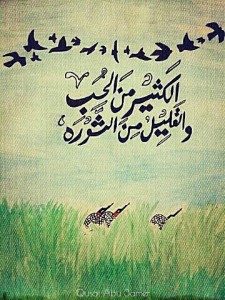 الكثير من الحب
والقليل من الثورة
Qusai Abu Samer